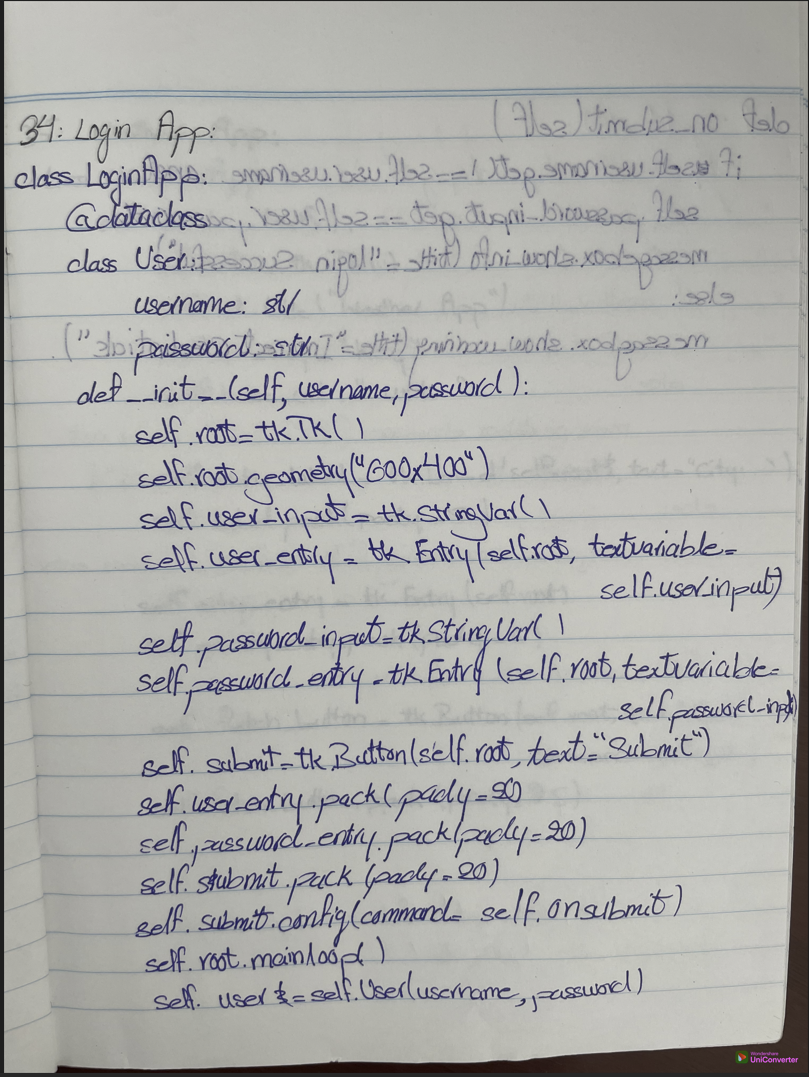 34: Login App:
class LoginApp:
@dataclass
class User:
username: str
password: str
def __init__(self, username, password):
self.root=tk.Tk()
self.root.geometry("600x400")
self.user_input = tk.StringVar()
self.user_entry = tk Entry(self.root, textvariable=
self.user_input)
self.password_input=tk StringVar()
self.password_entry = tk Entry (self.root, textvariable=
self.password_input)
self. submit=tk.Button(self.root, text="Submit")
self.user_entry.pack(pady=20)
self.password_entry.pack(pady=20)
self.submit.pack(pady=20)
self. submit.config(command= self.onsubmit)
self.root.mainloop()
self. user = self.User(username, password)
Wondershare
UniConverter